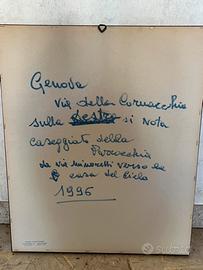 Genova
via della Cornacchia
sulla destra si nota
caseggiato della
Parrocchia
da via Minoretti verso la
casa del Cielo
1996
Subito.it